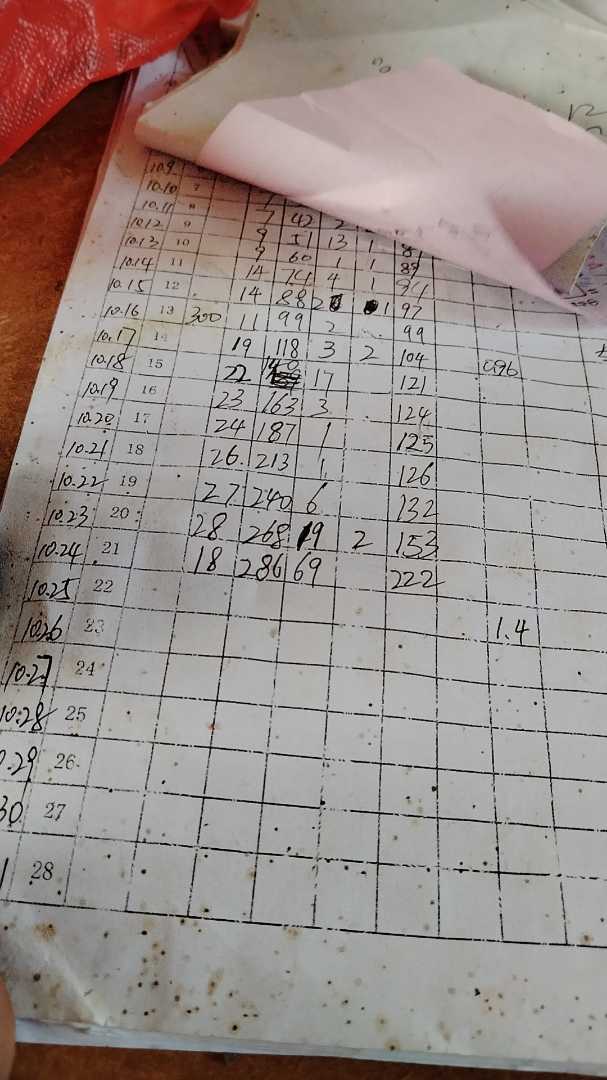 10.9
10.10 7
10.11 8 7 42 2
10.12 9 9 51 13 1 87
10.13 10 9 60 1 1
10.14 11 14 74 4 1 94
10.15 12 14 88 2 1 97
10.16 13 300 11 99 2 99
10.17 14 19 118 3 2 104 0.96
10.18 15 22 140 17 121
10.19 16 23 163 3 124
10.20 17 24 187 1 125
10.21 18 26 213 1 126
10.22 19 27 240 6 132
10.23 20 28 268 19 2 153
10.24 21 18 286 69 222
10.25 22 1.4
10.26 23
10.27 24
10.28 25
.29 26
30 27
1 28